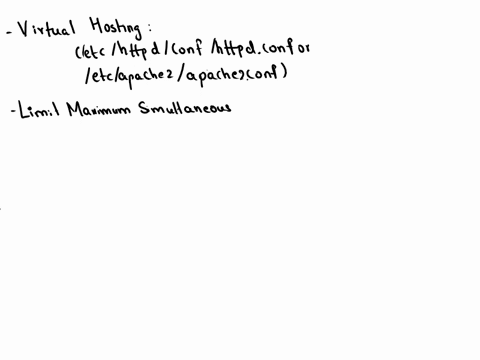 - Virtual Hosting:
(/etc/httpd/conf/httpd.conf or
/etc/apache2/apache2.conf)
- Limit Maximum Smultaneous